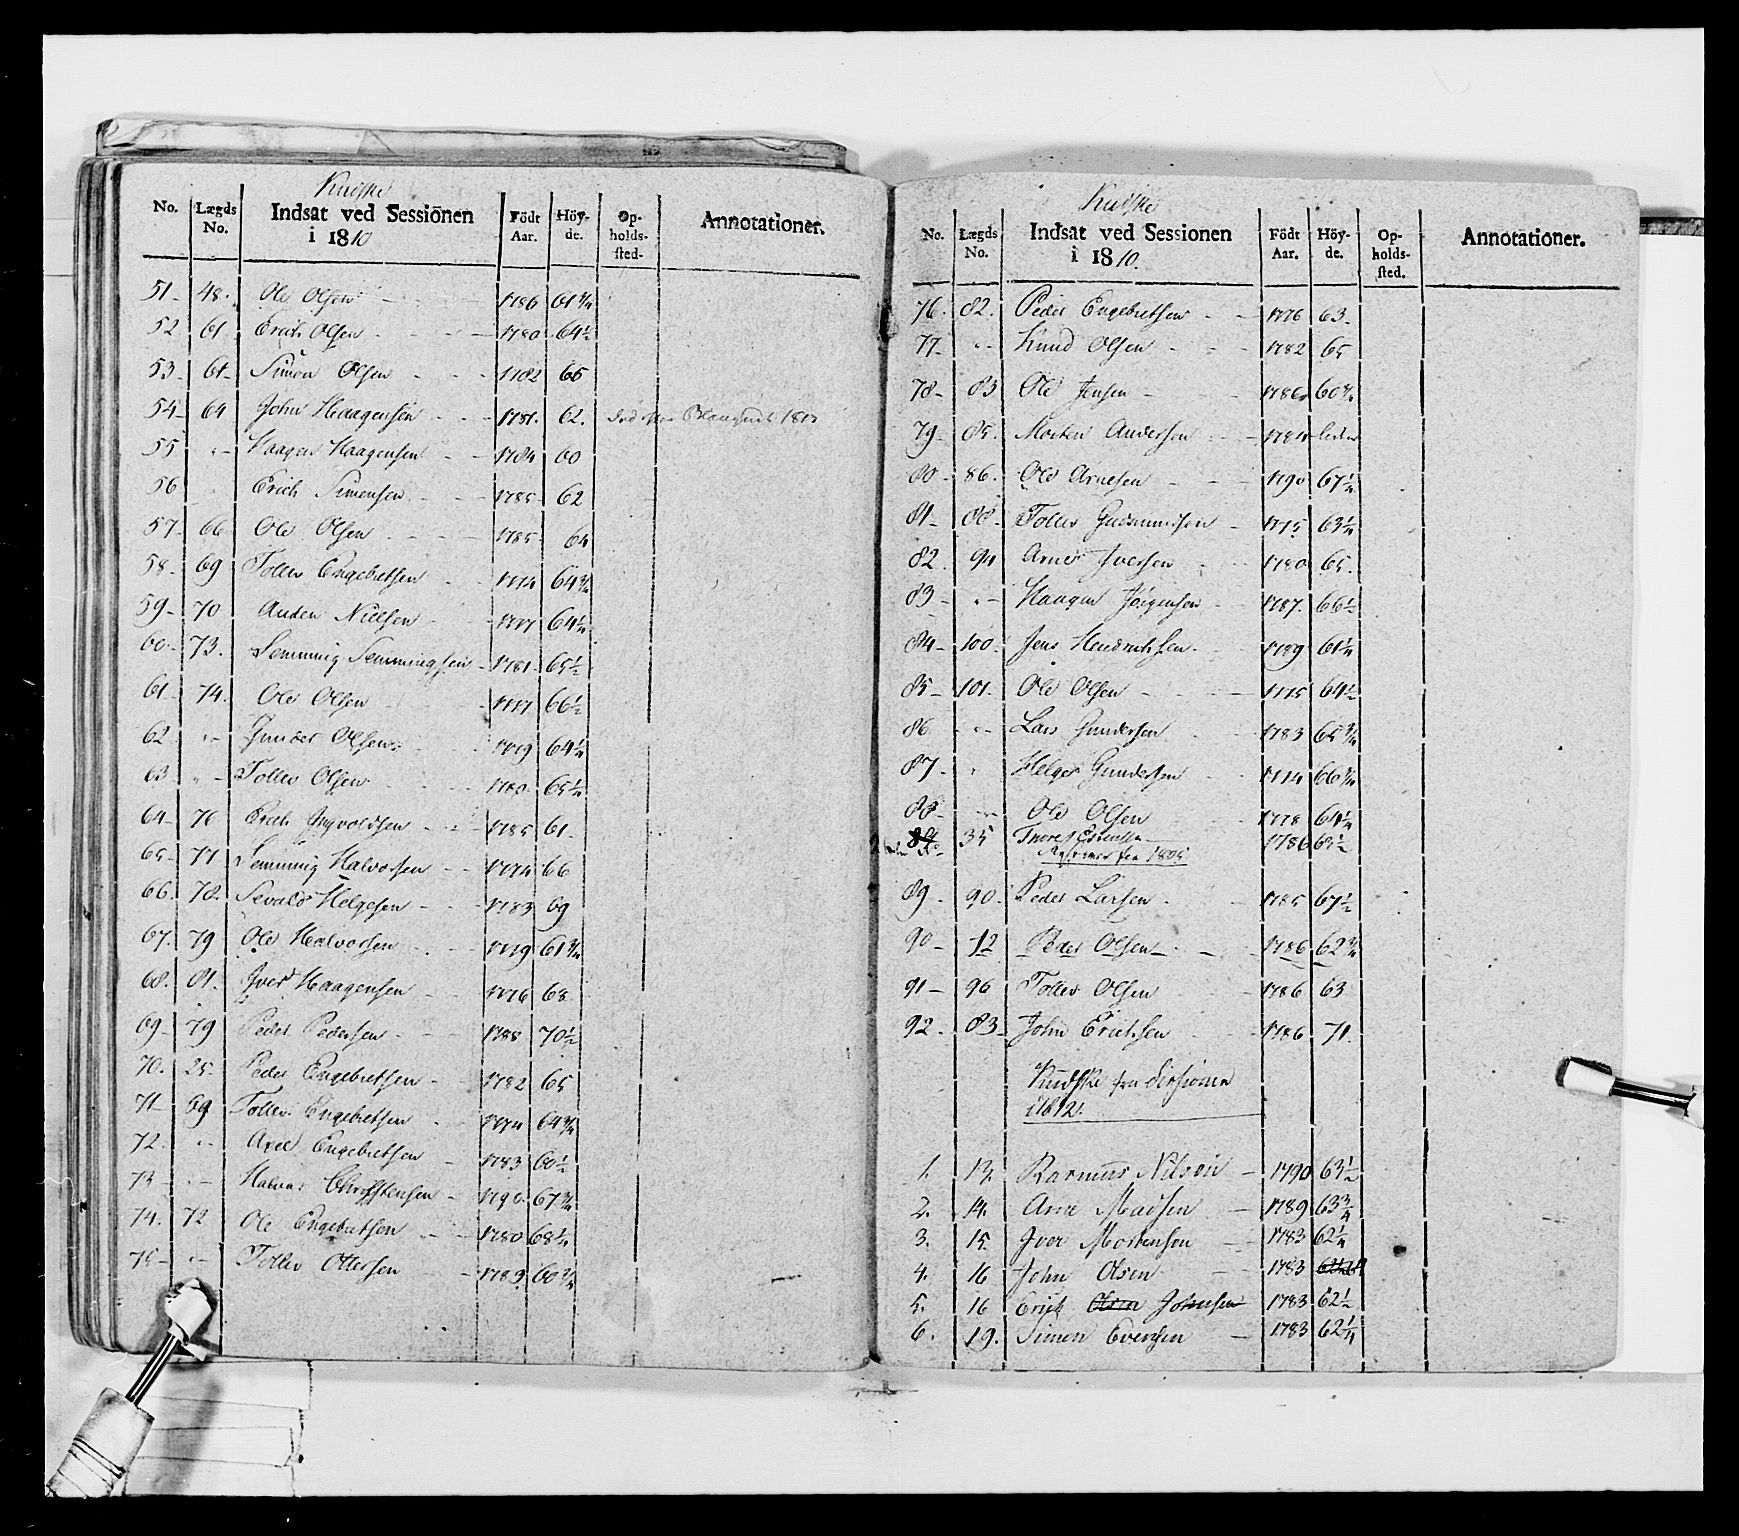 Kudske
No. Lægds No. Indsat ved Sessionen i 1810 Födt Aar. Höyde. Opholdssted. Annotationer.
51 48. Ole Olsen 1786 61 3/4
52 61 Erich Olsen 1780 64 1/2
53 61 Simen Olsen 1782 65
54 64 John Haagensen 1781. 62. 
55 "- Haagen Haagensen 1784 60
56 " Erich Simensen 1785 62
57 66 Ole Olsen 1785 64
58 69 Tollev Engebretsen 1774 64 3/4
59 70 Anden Nielsen 1777 64 1/4
60 73. Semming Semmingsen 1781 65 1/2
61 74. Ole Olsen 1777 66 1/2
62 "- Gunder Olsen 1779 64 1/4
63 "- Tollev Olsen 1780 65 1/4
64 76 Erich Ingvoldsen 1785 61
65 77 Semming Halvorsen 1774 66
66. 78. Sevald Helgesen 1783 69
67. 79 Ole Halvorsen 1779 61 3/4
68. 81. Iver Haagensen 1776 68
69 79 Peder Pedersen 1788 70 1/2
70. 25. Peder Engebretsen 1782 65
71 69 Tollev Engebretsen 1774 64 3/4
72. "- Axel Engebretsen 1783 60 1/2
73 "- Halvor Christensen 1790 67 3/4
74. 72 Ole Engebretsen 1780 68 1/4
75 "- Tollev Ottersen 1783 60 3/4
Kudske
No. Lægds No. Indsat ved Sessionen i 1810. Födt Aar. Höyde. Opholdssted. Annotationer.
76. 82. Peder Engebretsen 1776 63
77 "- Knud Olsen 1782 65
78 83 Ole Jensen 1786 60 3/4
79 85. Morten Andersen 1784
80 86. Ole Arnesen 1790 67 1/4
81 88 Tollev Gudmundsen 1775 63 1/4
82. 94 Arne Iversen 1780 65.
83 "- Haagen Jörgensen 1787. 66 1/2
84 100. Jens Hendrichsen 1789 61 1/4
85 101 Ole Olsen 1775 64 1/2
86 "- Lars Gundersen 1783 65 3/4
87 " Helge Gundersen 1774 66 3/4
88 "- Ole Olsen 1778 64 1/4
89 35 Thore 1786 63 1/2
fra 1805
89 90. Peder Larsen 1785 67 1/2
90 12 Peder Olsen 1786 62 3/4
91 96 Tollev Olsen 1786 63
92. 83 John Erichsen 1786 71.
Kudske fra Sessionen
i 1812.
1. 13. Rasmus Nilsen 1790 63 1/2
2. 14. Arne Madsen 1789 63 3/4
3. 15. Iver Mortensen 1783 62 1/4
4. 16 John Olsen 1783
5. 16 Erich Olsen Johnsen 1783 62 1/2
6. 19. Simen Evensen 1783 62 1/4